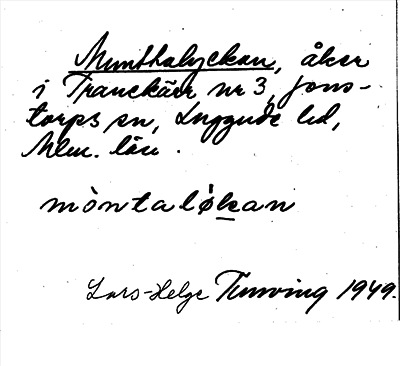 Munthalyckan, åker
i Tranekärr nr 3, Jons-
torps sn, Luggude hd,
Mlm. län.
mòntaløkan
Lars-Helge Tunving 1949.